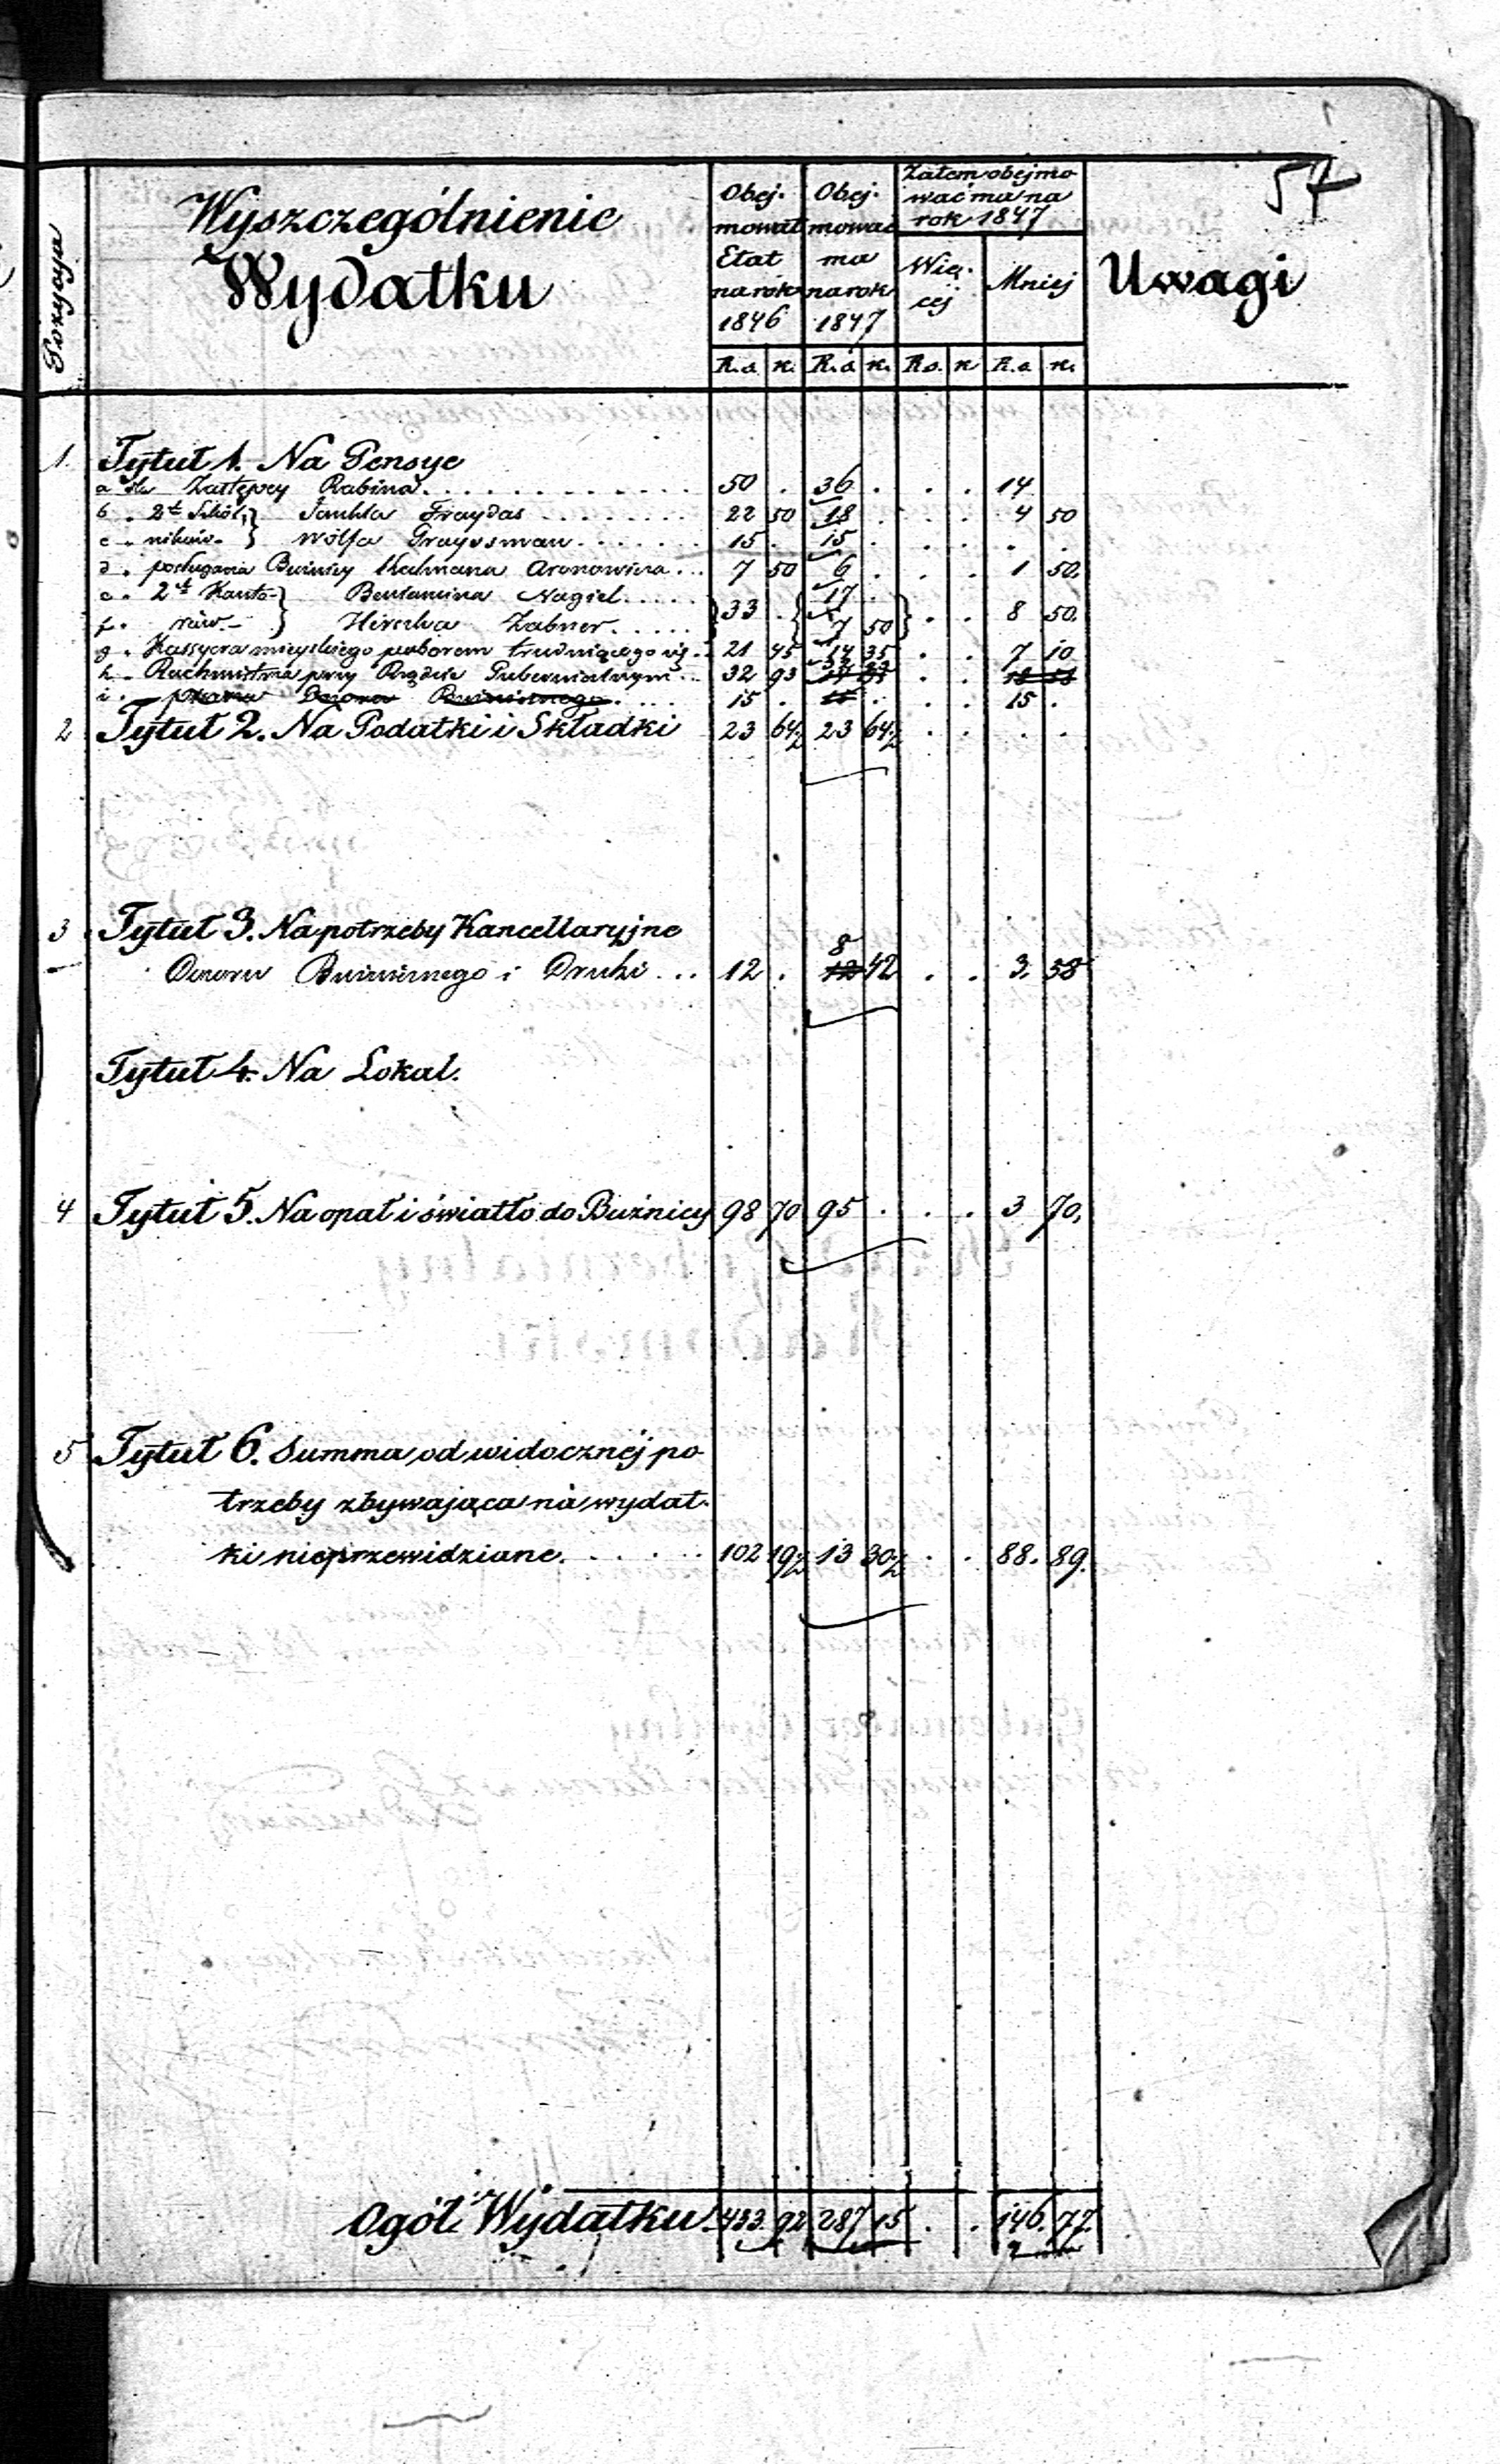 57
Pozycya
Wyszczególnienie
Wydatku
Obej-
mował
Etat
na rok
1846
Obej-
mować
ma
na rok
1847
Zatem obejmo
wać ma na
rok 1847
Wię-
cej
Mniej
Uwagi
R.s. k. R.s. k. R.s. k R.s. k.
1. Tytuł 1. Na Pensye
a dla Zastępcy Rabina 50 . 36 . . . 14
b. 2ch Szkól- } Jankla Fraydas 22 50 18 . . . 4 50
c. ników- } Wolfa Grayosman 15 . 15 . . . . .
d. posługacza Bużnicy Kalmana Aronowicza 7 50 6 . . . 1 50.
e. 2ch Kanto- } Beniamina Nagiel } 33 . { 17 . } . . 8 50.
f. rów- } Herszka Zabner 7 50
g. Kassyera mieyskiego poborem trudniącego się 21 45 14 35 . . 7 10
h. Rachmistrza przy Rządzie Gubernialnym 32 93
i. Dozoru Bużniczego 15 . 15 . . . 15 .
2 Tytuł 2. Na Podatki i Składki 23 64½ 23 64½ . . . .
3 Tytuł 3. Na potrzeby Kancellaryjne
8
Dozoru Bużnicznego i Druki 12 . 12 42 . . 3. 58
Tytuł 4. Na Lokal.
4 Tytuł 5. Na opał i światło do Bużnicy 98 70 95 . . . 3 70.
5 Tytuł 6. Summa od widocznéj po
trzeby zbywająca na wydat-
ki nieprzewidziane. 102 19½ 13 30½ . . 88. 89.
Ogół Wydatku 433 92 287 15 . . 146. 77.